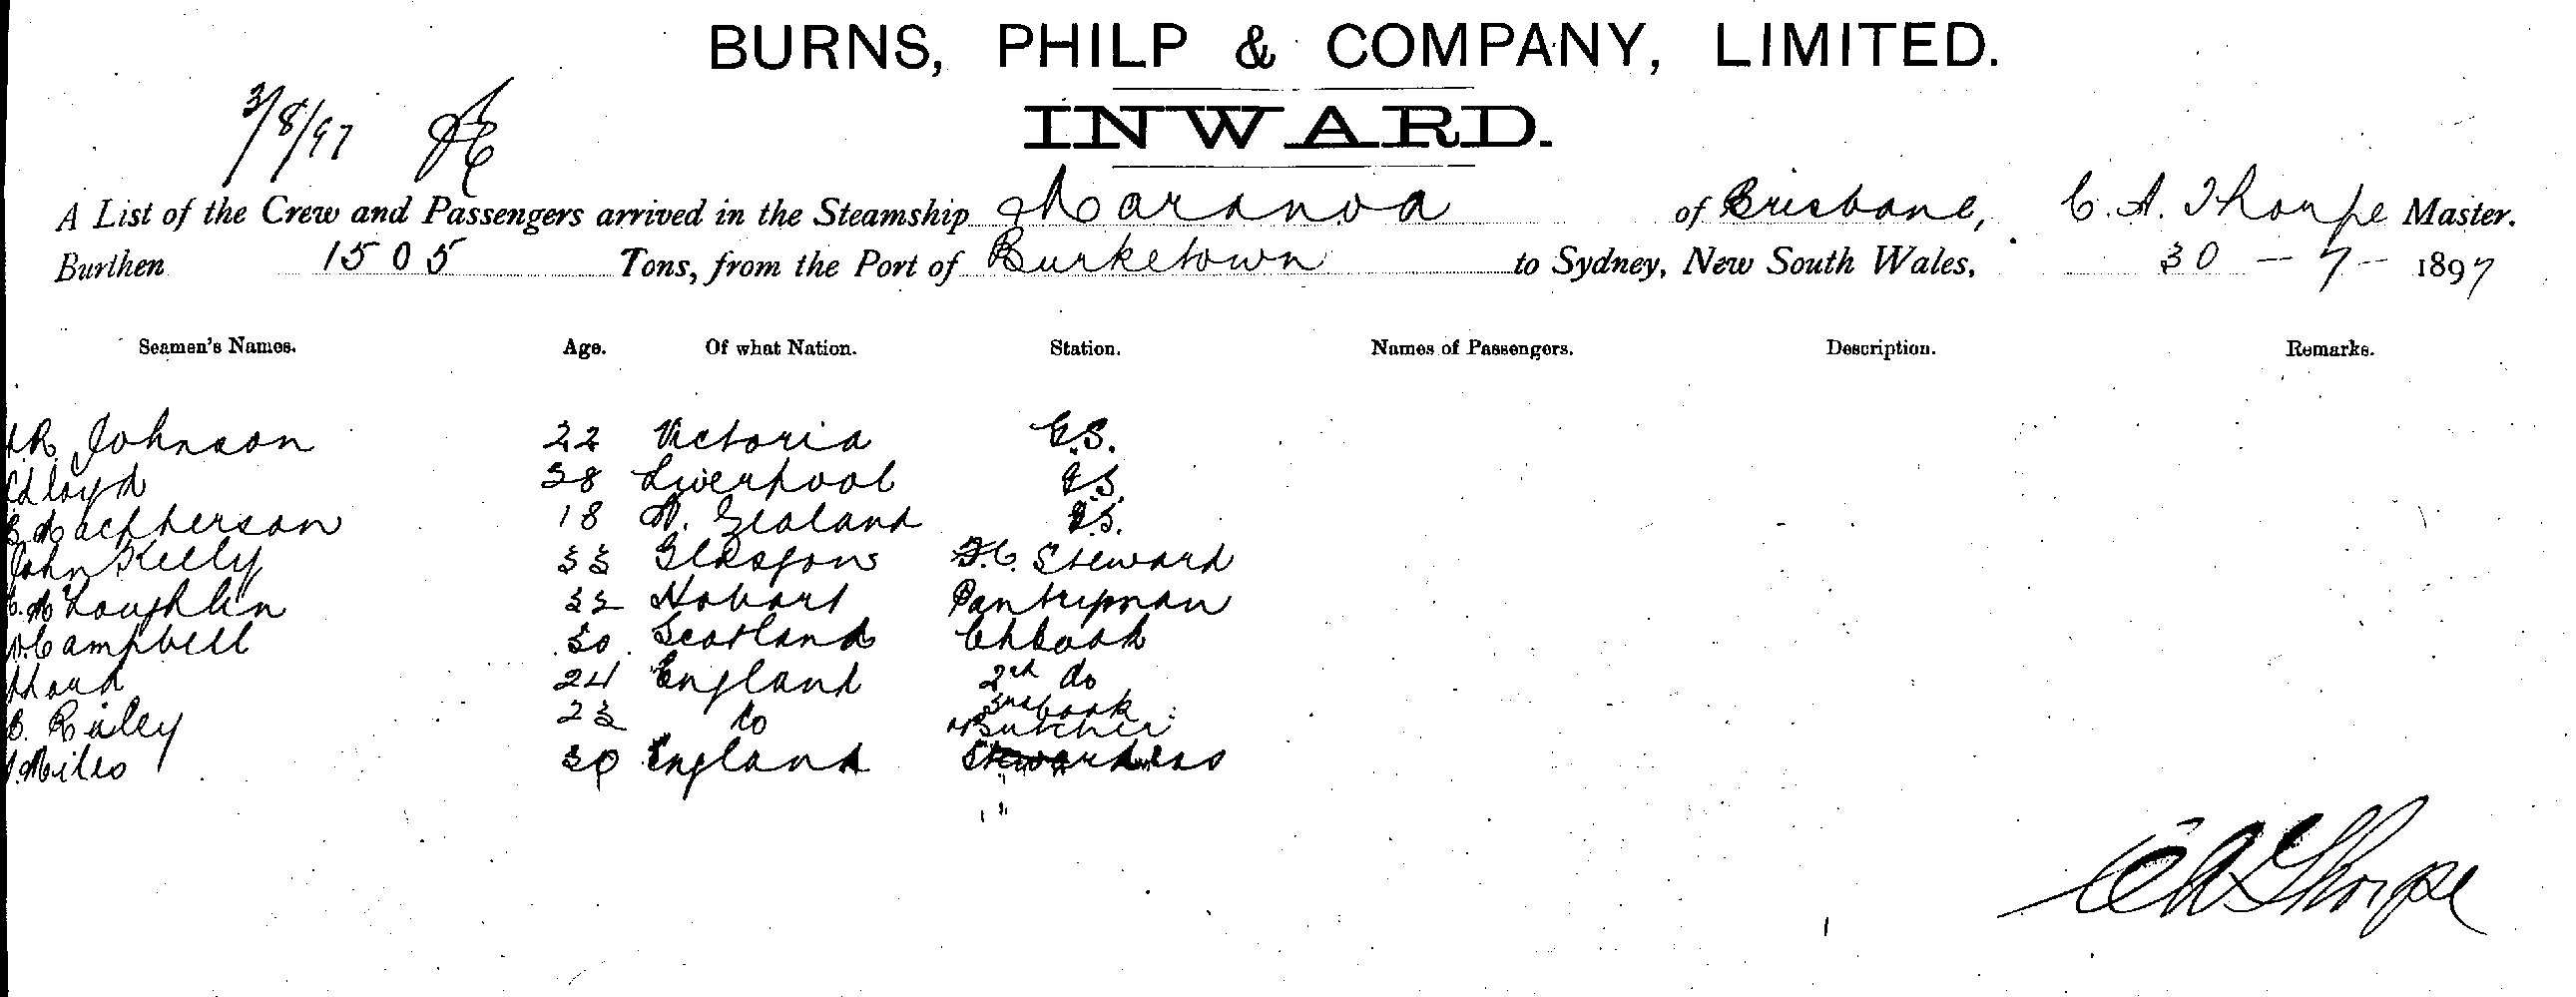 BURNS, PHILP & COMPANY, LIMITED.
INWARD.
3/8/97
A List of the Crew and Passengers arrived in the Steamship Maranoa of Brisbane, C. A. Thorpe Master.
Burthen 1505 Tons, from the Port of Burketown to Sydney, New South Wales, 30 - 7 - 1897
Seamen's Names. Age. Of what Nation. Station. Names of Passengers. Description. Remarks.
R. Johnson 22 Victoria G.S.
Lloyd 38 Liverpool G.S.
Macpherson 18 N. Zealand G.S.
John Kelly 33 Glasgow F.C. Steward
McLoughlin 32 Hobart Pantryman
Campbell 30 Scotland Ch Cook
24 England 2nd do
Riley 23 do 3rd Cook
Butcher
Miles 30 England Stewardess
C A Thorpe